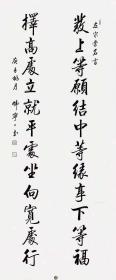 左宗棠名言
發上等願結中等緣享下等福
擇高處立就平處坐向寬處行